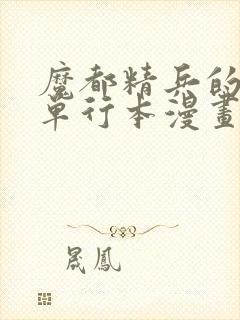 魔都精兵的
单行本漫畫
晟鳳